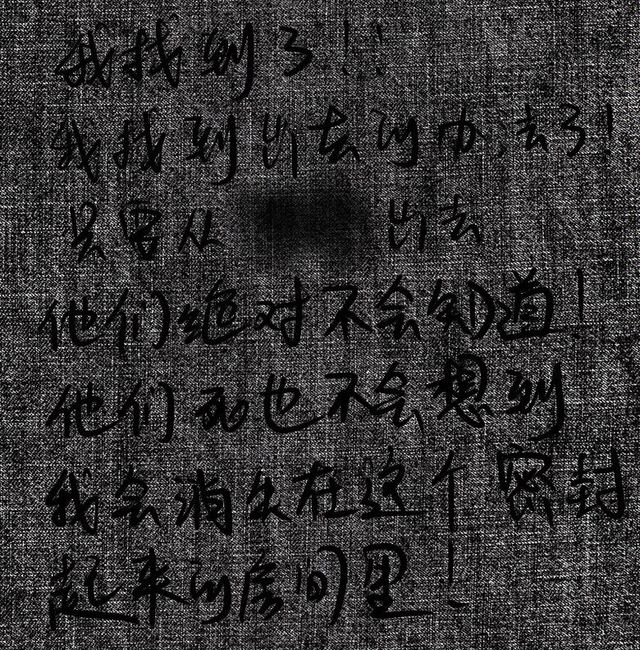 我找到了！！
我找到出去的办法了！
只要从 出去
他们绝对不会知道！
他们死也不会想到
我会消失在这个密封
起来的房间里！